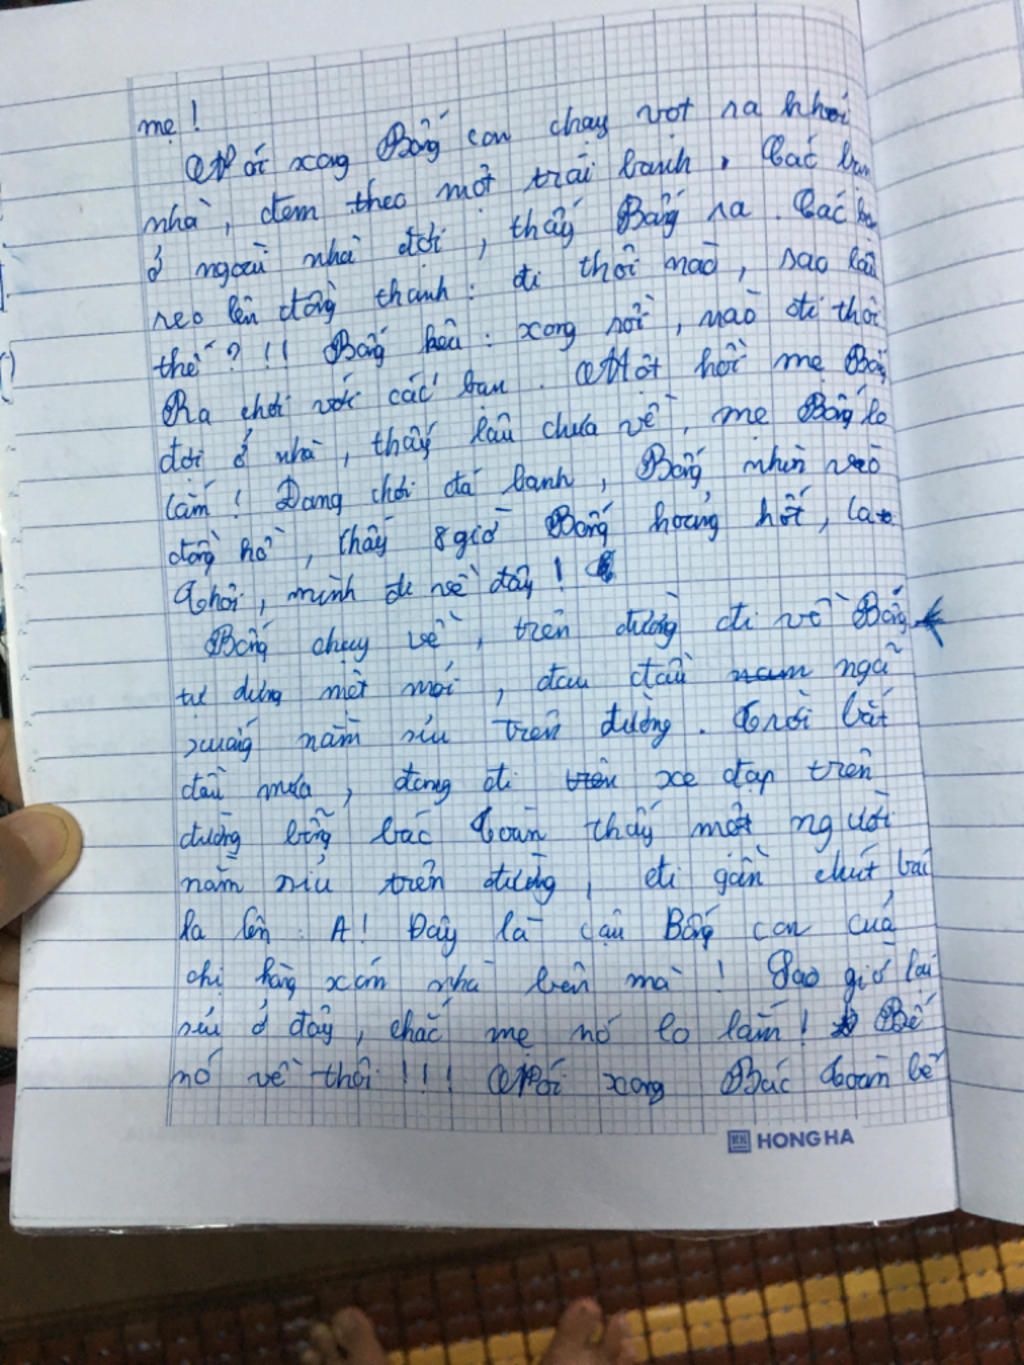 mẹ!
Nói xong Bống con chạy vọt ra khỏi
nhà, đem theo một trái banh. Các bạn
ở ngoài nhà đợi, thấy Bống ra. Các bạn
reo lên đồng thanh: đi thôi nào, sao lâu
thế?!! Bống kêu: xong rồi, nào đi thôi
Ra chơi với các bạn. Một hồi mẹ Bống
đợi ở nhà, thấy lâu chưa về, mẹ Bống lo
lắm! Đang chơi đá banh, Bống nhìn vào
đồng hồ, thấy 8 giờ Bống hoảng hốt, la
Thôi, mình đi về đây!
Bống chạy về, trên đường đi về Bống
tự dưng mệt mỏi, đau đầu ngã
xuống nằm xỉu trên đường. Trời bắt
đầu mưa, đang đi xe đạp trên
đường bỗng bác Toàn thấy một người
nằm xỉu trên đường, đi gần chút, bác
la lên: A! Đây là cậu Bống con của
chị hàng xóm nhà bên mà! Sao giờ lại
xỉu ở đây, chắc mẹ nó lo lắm! Bế
nó về thôi!!! Nói xong Bác Toàn bế
HONG HA